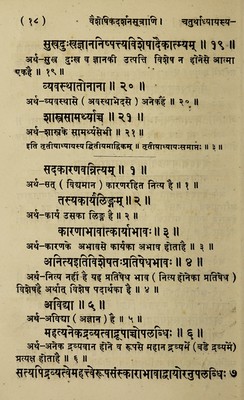 (१८) वैशेषिकदर्शनसूत्राणि । चतुर्थाध्यायस्य-
सुखदुःखज्ञाननिष्पत्त्यविशेषादैकात्म्यम् ॥ १९ ॥
अर्थ-सुख दुःख व ज्ञानकी उत्पत्ति विशेष न होनेसे आत्मा
एकहै ॥ १९ ॥
व्यवस्थातोनाना ॥ २० ॥
अर्थ-व्यवस्थासे ( अवस्थाभेदसे ) अनेकहैं ॥ २० ॥
शास्त्रसामर्थ्याच्च ॥ २१ ॥
अर्थ-शास्त्रके सामर्थ्यसेभी ॥ २१ ॥
इति तृतीयाध्यायस्य द्वितीयमाह्निकम् ॥ तृतीयाध्यायःसमाप्तः ॥ ३ ॥
सदकारणवन्नित्यम् ॥ १ ॥
अर्थ-सत् ( विद्यमान ) कारणरहित नित्य है ॥ १ ॥
तस्यकार्यलिङ्गम् ॥ २ ॥
अर्थ-कार्य उसका लिङ्ग है ॥ २ ॥
कारणाभावात्कार्याभावः ॥ ३ ॥
अर्थ-कारणके अभावसे कार्यका अभाव होताहै ॥ ३ ॥
अनित्यइतिविशेषतःप्रतिषेधभावः ॥ ४ ॥
अर्थ-नित्य नहीं है यह प्रतिषेध भाव ( नित्य होनेका प्रतिषेध )
विशेषहै अर्थात् विशेष पदार्थका है ॥ ४ ॥
अविद्या ॥ ५ ॥
अर्थ-अविद्या ( अज्ञान ) है ॥ ५ ॥
महत्यनेकद्रव्यत्वाद्रूपाच्चोपलब्धिः ॥ ६ ॥
अर्थ-अनेक द्रव्यवान होने व रूपसे महान द्रव्यमें ( बडे द्रव्यमें )
प्रत्यक्ष होताहै ॥ ६ ॥
सत्यपिद्रव्यत्वेमहत्त्वेरूपसंस्काराभावाद्वायोरनुपलब्धिः ७